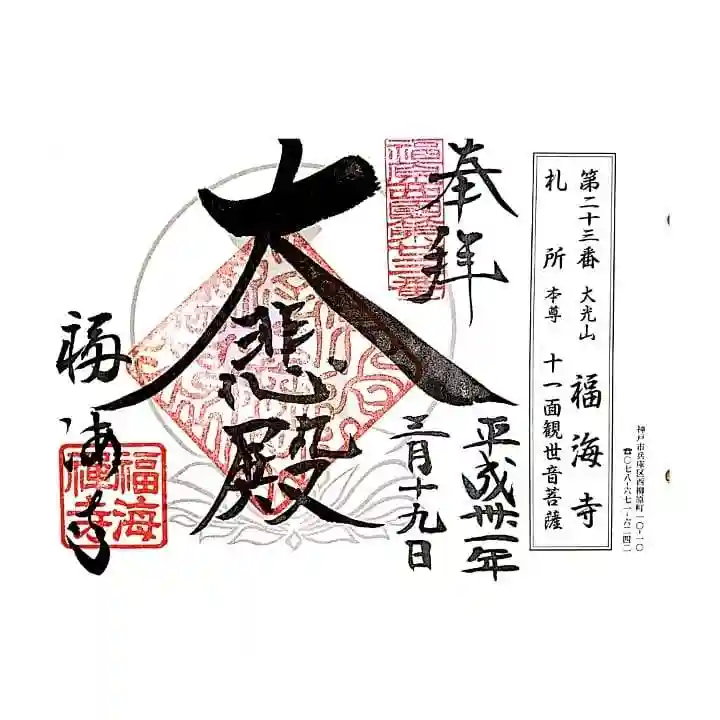 第二十三番 大光山 福海寺
札所 本尊 十一面観世音菩薩
神戸市兵庫区西柳原町一〇-一〇
☎〇七八-六七一-六二四二
奉拝
平成卅一年
三月十九日
大悲殿
福海寺
福海
禅寺